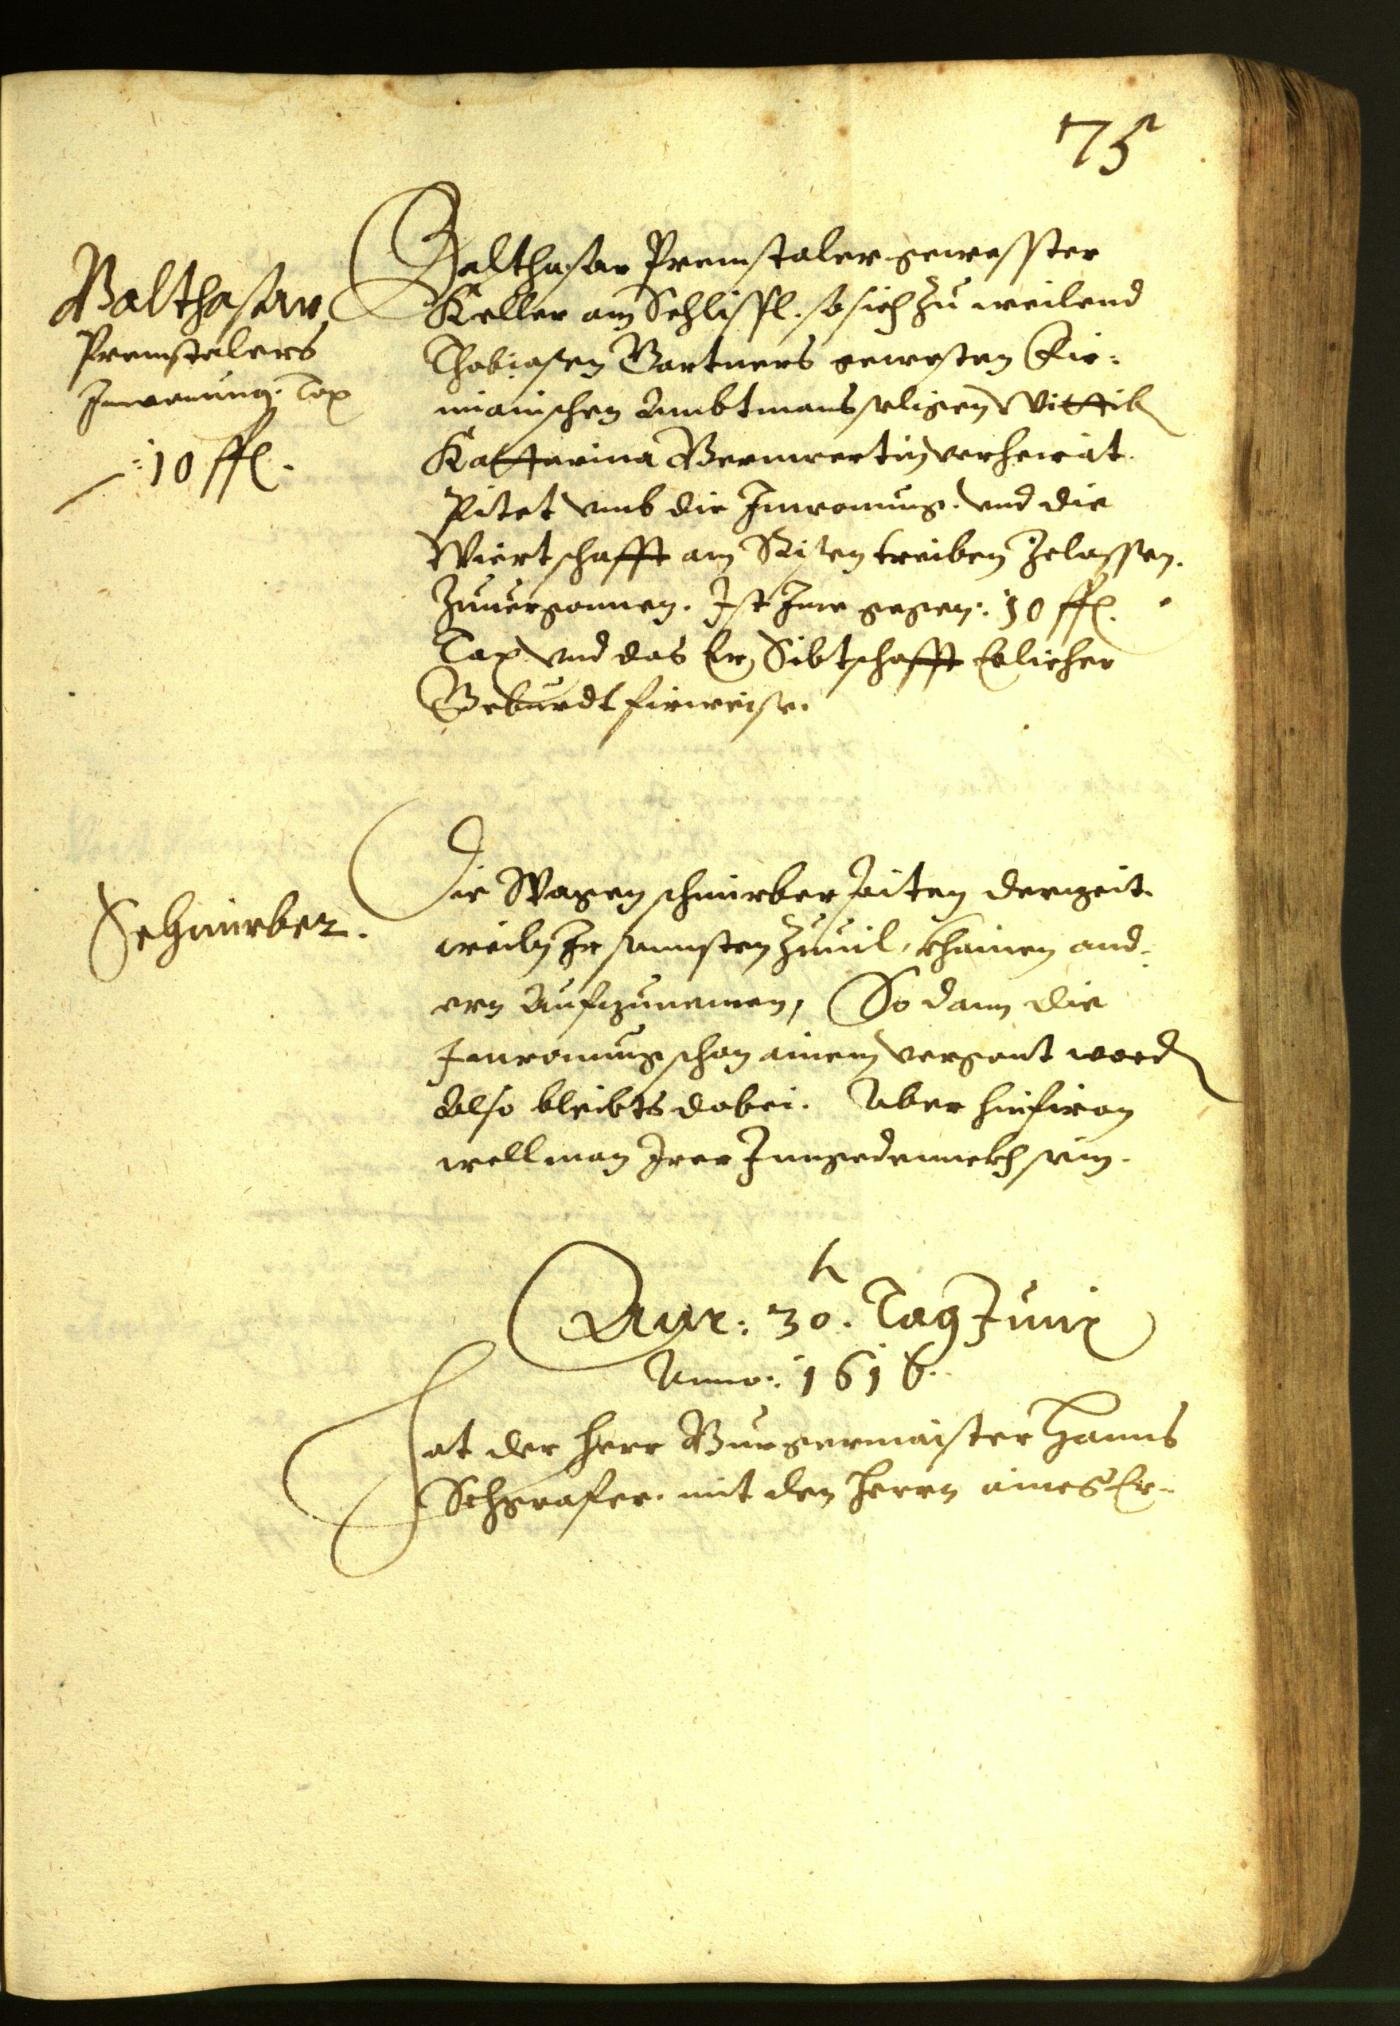 75
Balthasar
Premstalers
Inwonung. Tax
10 ffl.
Balthasar Premstaler gewesster
Keller am Schliffl. so sich zu weilend
Thobiasen Gartners gewesten Fir-
mianischen Ambtmans seligen Wittib
Kattarina Bermwertin verheirat.
Pitet umb die Inwonung. und die
Wiertschafft am Riten treiben zelassen.
Zuvergonnen. Ist Ime gegen: 10 ffl.
Tax und das Er Sibtschafft Eelicher
Geburdt firweise.
Schmirber.
Die Wagenschmirber piten derzeit
weiln Ir sunnsten zuvil, khainen and-
ern Aufzunemen, So dann die
Inwonung schon ainem vergont word
Also bleibts dabei. Aber hinfiran
well man Irer Inngedennckh sein.
Am: 30. Tag Junii
Anno: 1616.
Hat der Herr Burgermaister Hanns
Schgrafer. mit den Herrn aines Er-